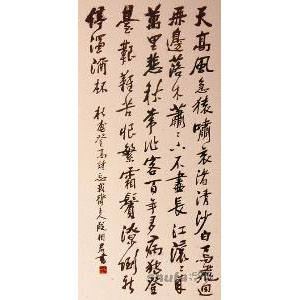 天高風急猿嘯哀渚清沙白鳥飛回
無邊落木蕭々下不盡長江滾々來
萬里悲秋常作客百年多病獨登
臺艱難苦恨繁霜鬢潦倒新
停濁酒杯 杜甫登高詩 忘我齋主人 書